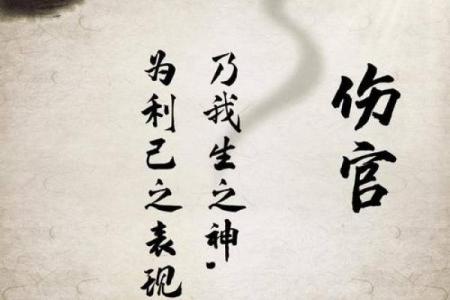 伤官
乃我生之神。
为利己之表现